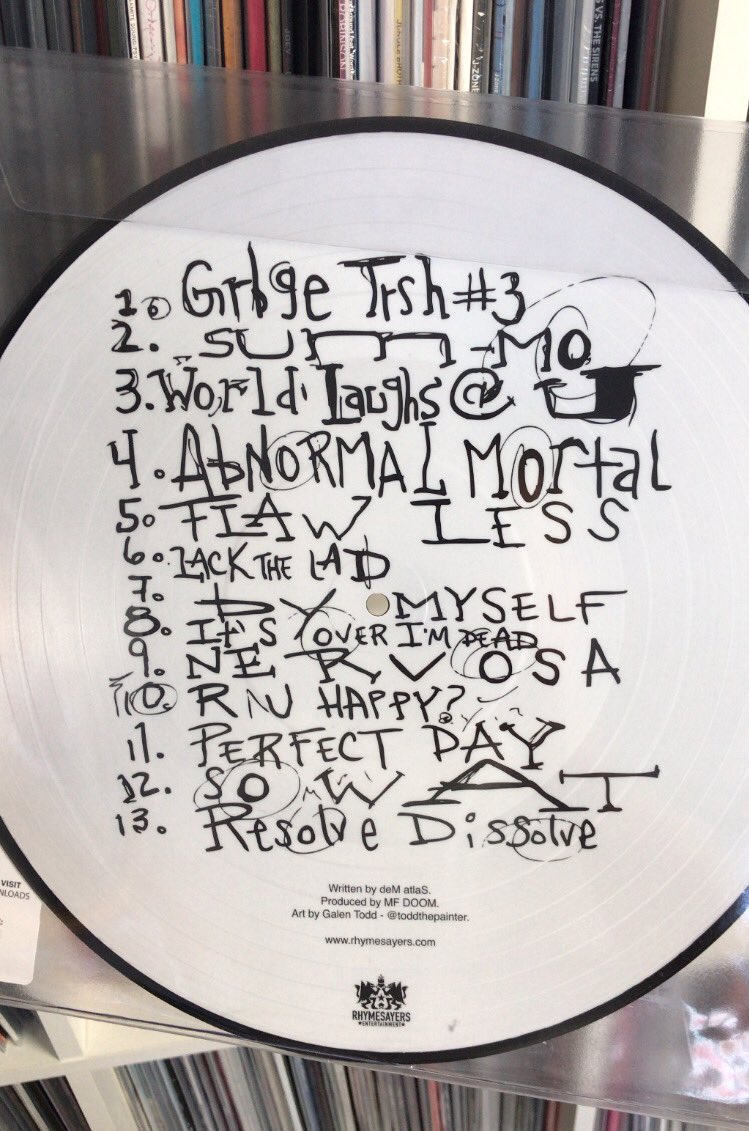 ROBINSON
JOEY
JUNGLE BROTH
J-ZONE
VS. THE SIRENS
1. Grbge Trsh #3
2. SUMM-MO
3. World Laughs @
4. AbNORMAL MOrtal
5. FLAW LESS
6. ZACK THE LAD
7. BY MYSELF
8. IT'S OVER I'M DEAD
9. NERVOSA
10. R N U HAPPY?
11. PERFECT DAY
12. SO WAT
13. Resolve Dissolve
VISIT
NLOADS
Written by deM atlaS.
Produced by MF DOOM.
Art by Galen Todd - @toddthepainter.
www.rhymesayers.com
RHYMESAYERS
ENTERTAINMENT